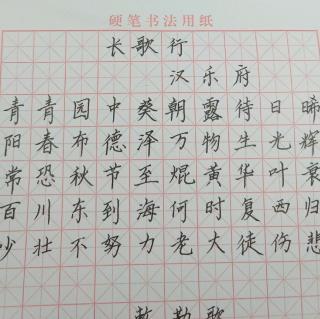 硬笔书法用纸
长歌行
汉乐府
青青园中葵朝露待日晞
阳春布德泽万物生光辉
常恐秋节至焜黄华叶衰
百川东到海何时复西归
少壮不努力老大徒伤悲
敕勒歌